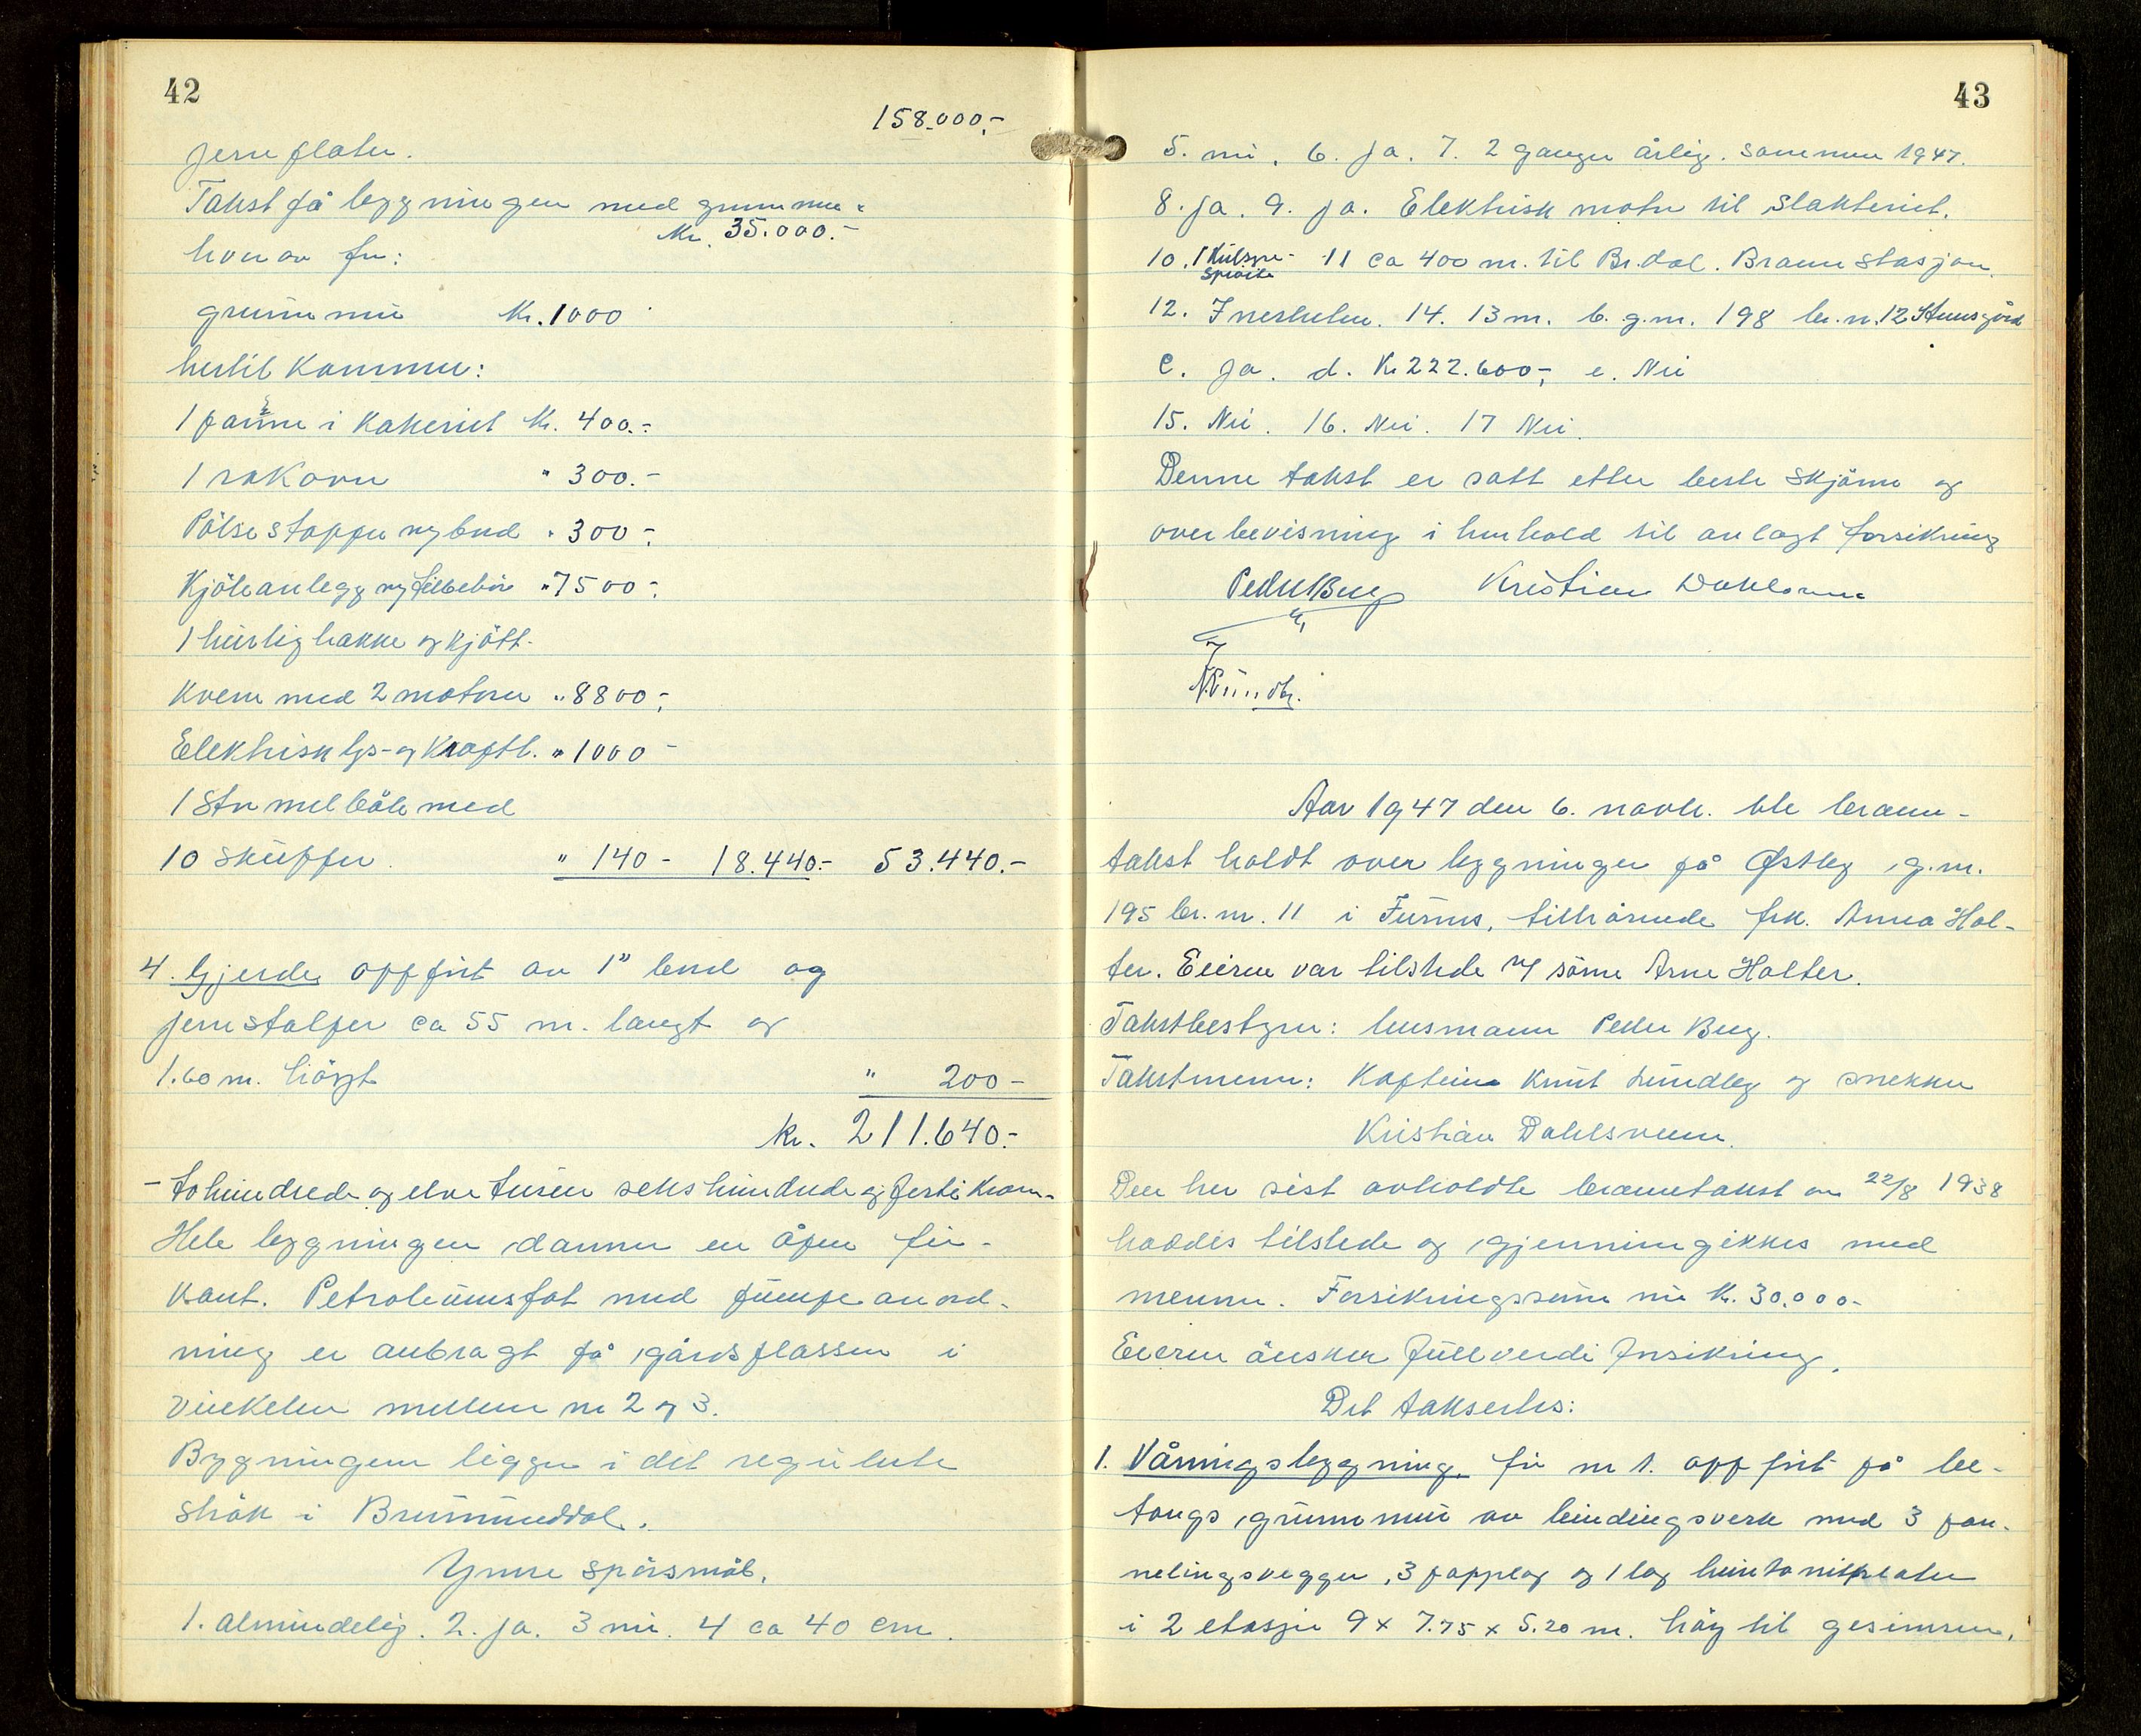 42
158.000,-
jernplater.
Takst på bygningen med grunnmur
kr. 35.000.-
hvorav for:
grunnmur kr. 1000
hertil kommer:
1 panne i kokeriet kr. 400.-
1 røkovn " 300.-
Pölsestopper m/bord " 300.-
Kjöleanlegg m/tilbehör " 7500.-
1 hurtighakke og kjött-
kvern med 2 motorer " 8800.-
Elektrisk lys- og kraftl. " 1000 -
1 stor melböle med
10 skuffer " 140 - 18.440.- 53.440.-
4. Gjerde oppfört av 1" bord og
jernstolper ca 55 m. langt og
1.60 m. höygt " 200 -
kr. 211.640.-
- tohundrede og elve tusen sekshundrede og förti kroner -
Hele bygningen danner en åpen fir-
kant. Petroleumsfat med pumpeanord-
ning er anbragt på gårdsplassen i
vinkelen mellem nr 2 og 3.
Bygningene ligger i det regulerte
strök i Brumunddal.
Ymse spörsmål.
1. almindelig. 2. ja. 3 nei. 4 ca 40 cm.
43
5. nei. 6. ja. 7. 2 ganger årlig. sommeren 1947.
8. ja. 9. ja. Elektrisk motor til slakteriet.
10. 1 Kulsyre- 11 ca 400 m. til Br.dal. Brannstasjon.
spröite
12. Inntekten. 14. 13 m. b. g.nr. 198 br.nr. 12
c. ja. d. Kr 222.600,- e. Nei
15. Nei. 16. Nei. 17 Nei.
Denne takst er satt etter beste skjönn og
overbevisning i henhold til avlagt forsikring
Peder Berg Kristian Dahlsveen
K. Lundby.
Aar 1947 den 6. novbr. ble brann-
takst holdt over bygninger på Østby g.nr.
195 br.nr. 11 i Furnes, tilhörende frk. Anna Hol-
ter. Eieren var tilstede v/ sönn Arne Holter.
Takstbestyrer: lensmann Peder Berg.
Takstmenn: Kaptein Knut Lundby og snekker
Kristian Dahlsveen.
Den her sist avholdte branntakst av 22/8 1938
haddes tilstede og gjennemgikkes med
mennene. Forsikringssum nu kr. 30.000-
Eieren önsker fullverdi forsikring.
Det takserles:
1. Våningsbygning, för nr 1. oppfört på be-
tongs grunnmur av bindingsverk med 3 pan-
nelingsvegger, 3 papplag og 1 lag huntonitplater
i 2 etasjer 9 x 7.75 x 5.20 m. höy til gesimsen.